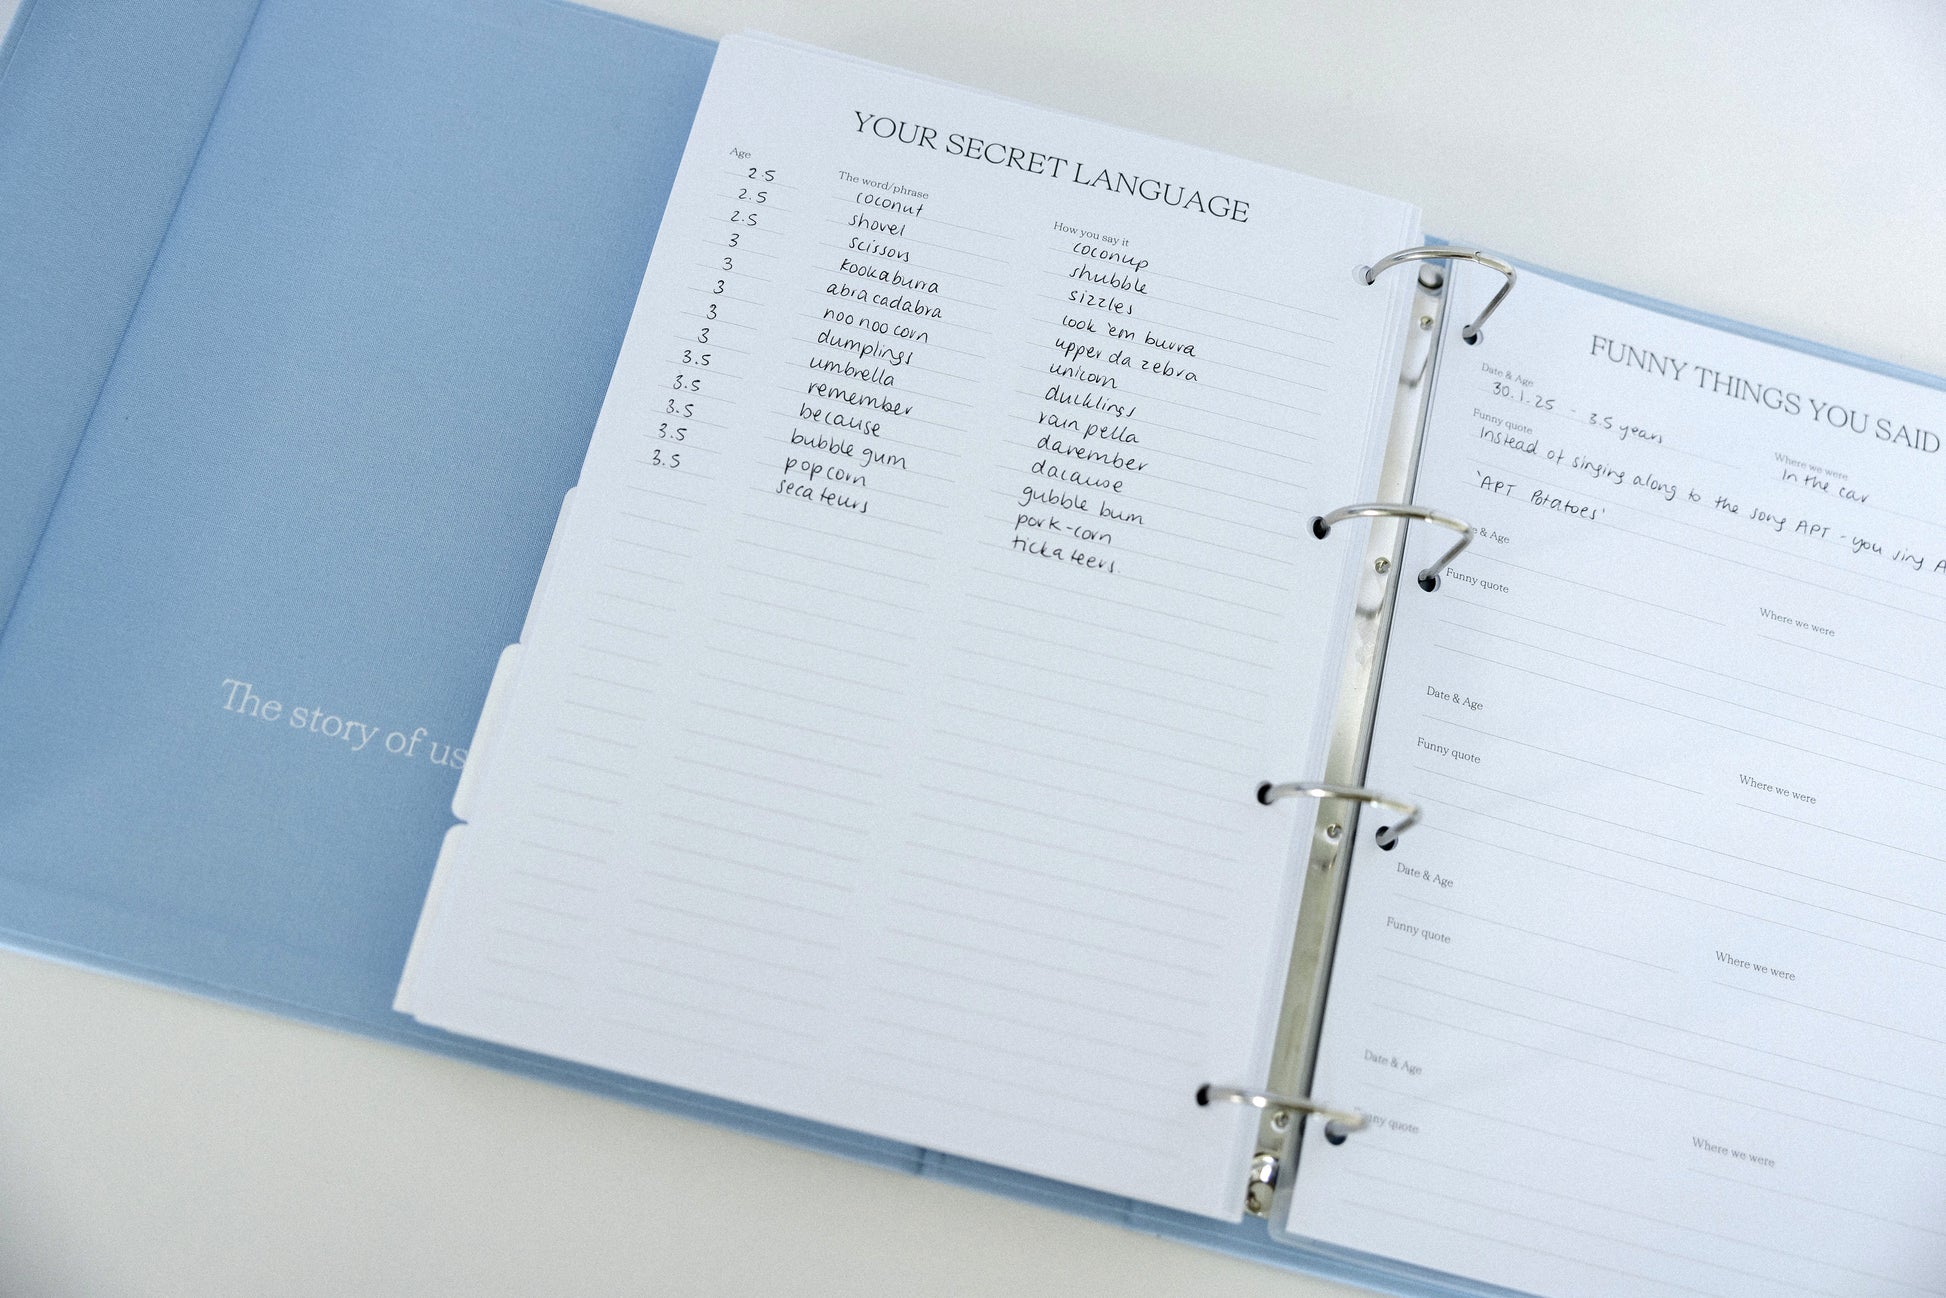 The story of us
YOUR SECRET LANGUAGE
Age The word/phrase How you say it
2.5 coconut coconup
2.5 shovel shubble
2.5 scissors sizzles
3 kookaburra look 'em burra
3 abracadabra upper da zebra
3 noo noo corn unicorn
3 dumplings ducklings
3 umbrella rain pella
3.5 remember danember
3.5 because dacause
3.5 bubble gum gubble bum
3.5 popcorn pork-corn
3.5 secateurs tickateers.
FUNNY THINGS YOU SAID
Date & Age
30.1.25 - 3.5 years
Where we were
In the car
Funny quote
Instead of singing along to the song APT - you sing A
'APT Potatoes'
e & Age
Where we were
Funny quote
Date & Age
Where we were
Funny quote
Date & Age
Where we were
Funny quote
Date & Age
Where we were
nny quote